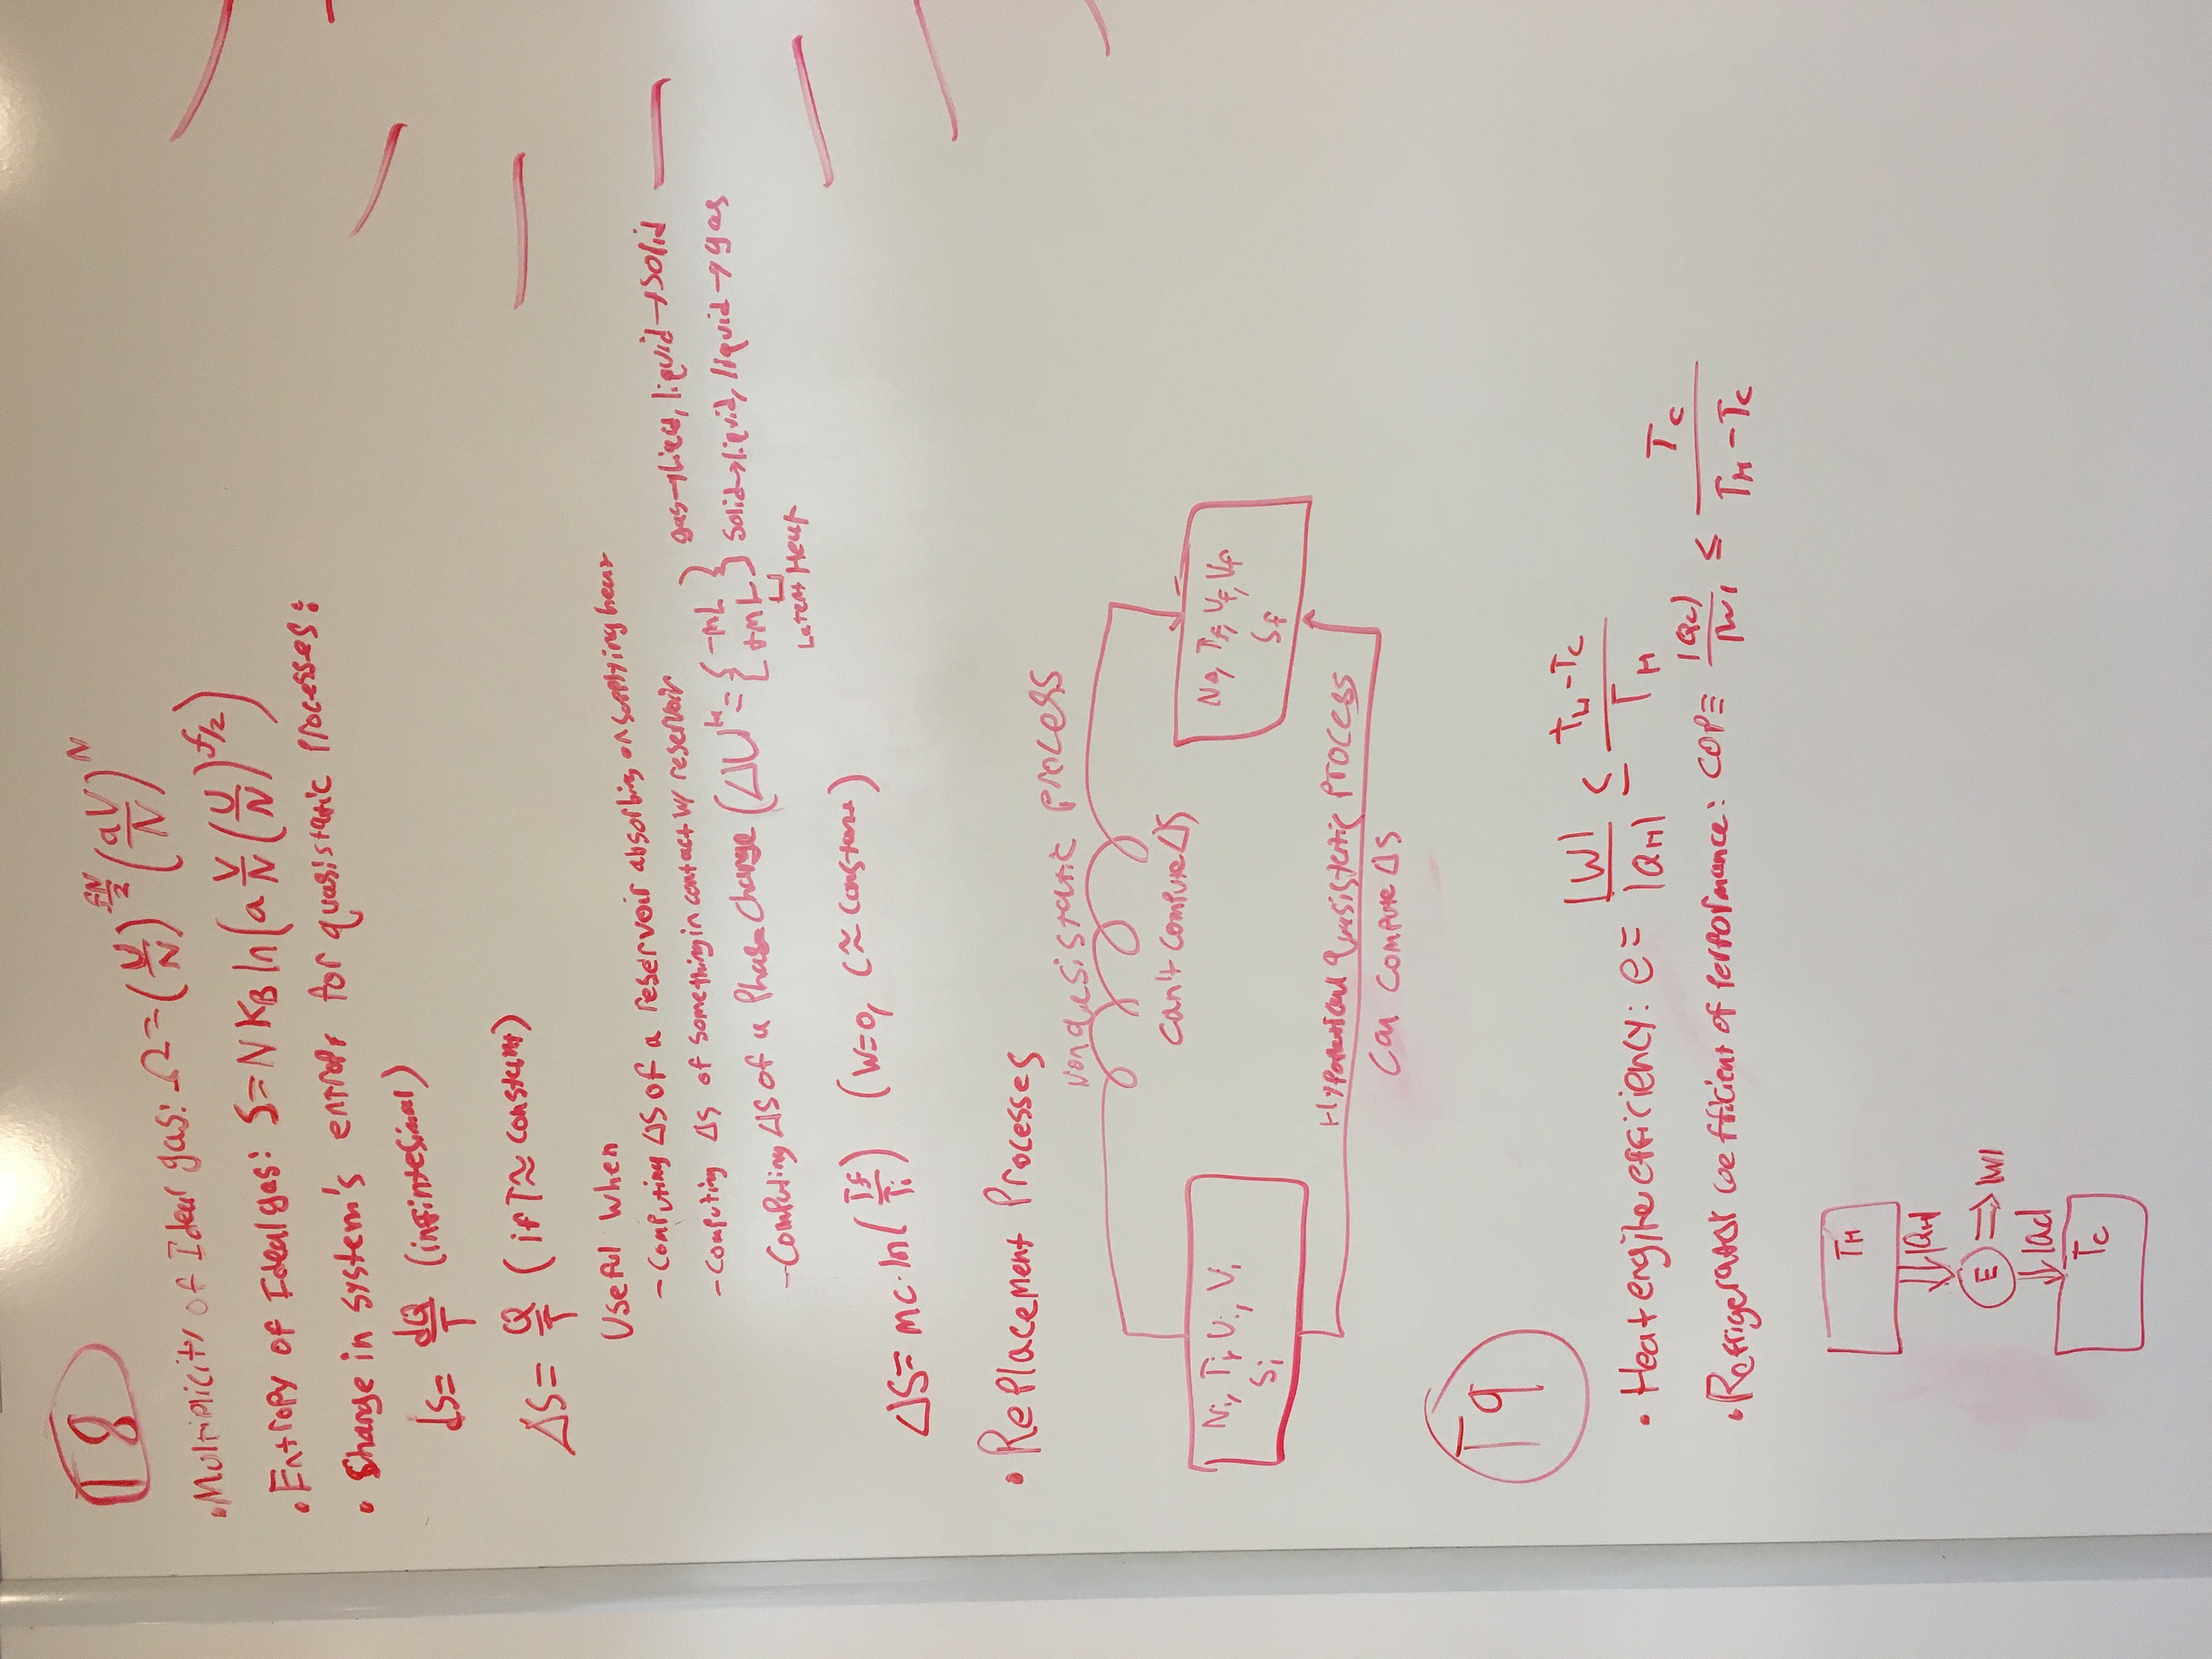 T8
• Multiplicity of Ideal gas: Ω = (U/N)^(fN/2) (aV/N)^N
• Entropy of Ideal gas: S = N K_B ln(a V/N (U/N)^(f/2))
• Change in system's entropy for quasistatic processes:
dS = dQ/T (infintesimal)
ΔS = Q/T (if T ≈ constant)
Useful when
- Computing ΔS of a reservoir absorbing or supplying heat
- Computing ΔS of something in contact w/ reservoir
- Computing ΔS of a Phase Change (ΔU = { -mL } gas→liquid, liquid→solid
{ +mL } solid→liquid, liquid→gas
Latent Heat
ΔS = mc·ln(Tf/Ti) (W=0, C ≈ constant)
• Replacement Processes
Nonqusistatic process
Can't compute ΔS
Ni, Ti, Ui, Vi
Si
Nf, Tf, Uf, Vf
Sf
Hypothetical quasistatic process
Can compute ΔS
T9
• Heat engine efficiency: e = |W|/|Q_H| ≤ (T_H - T_C)/T_H
• Refrigerator coefficient of performance: COP ≡ |Q_C|/|W| ≤ T_C/(T_H - T_C)
T_H
|Q_H|
E ⇒ |W|
|Q_C|
T_C